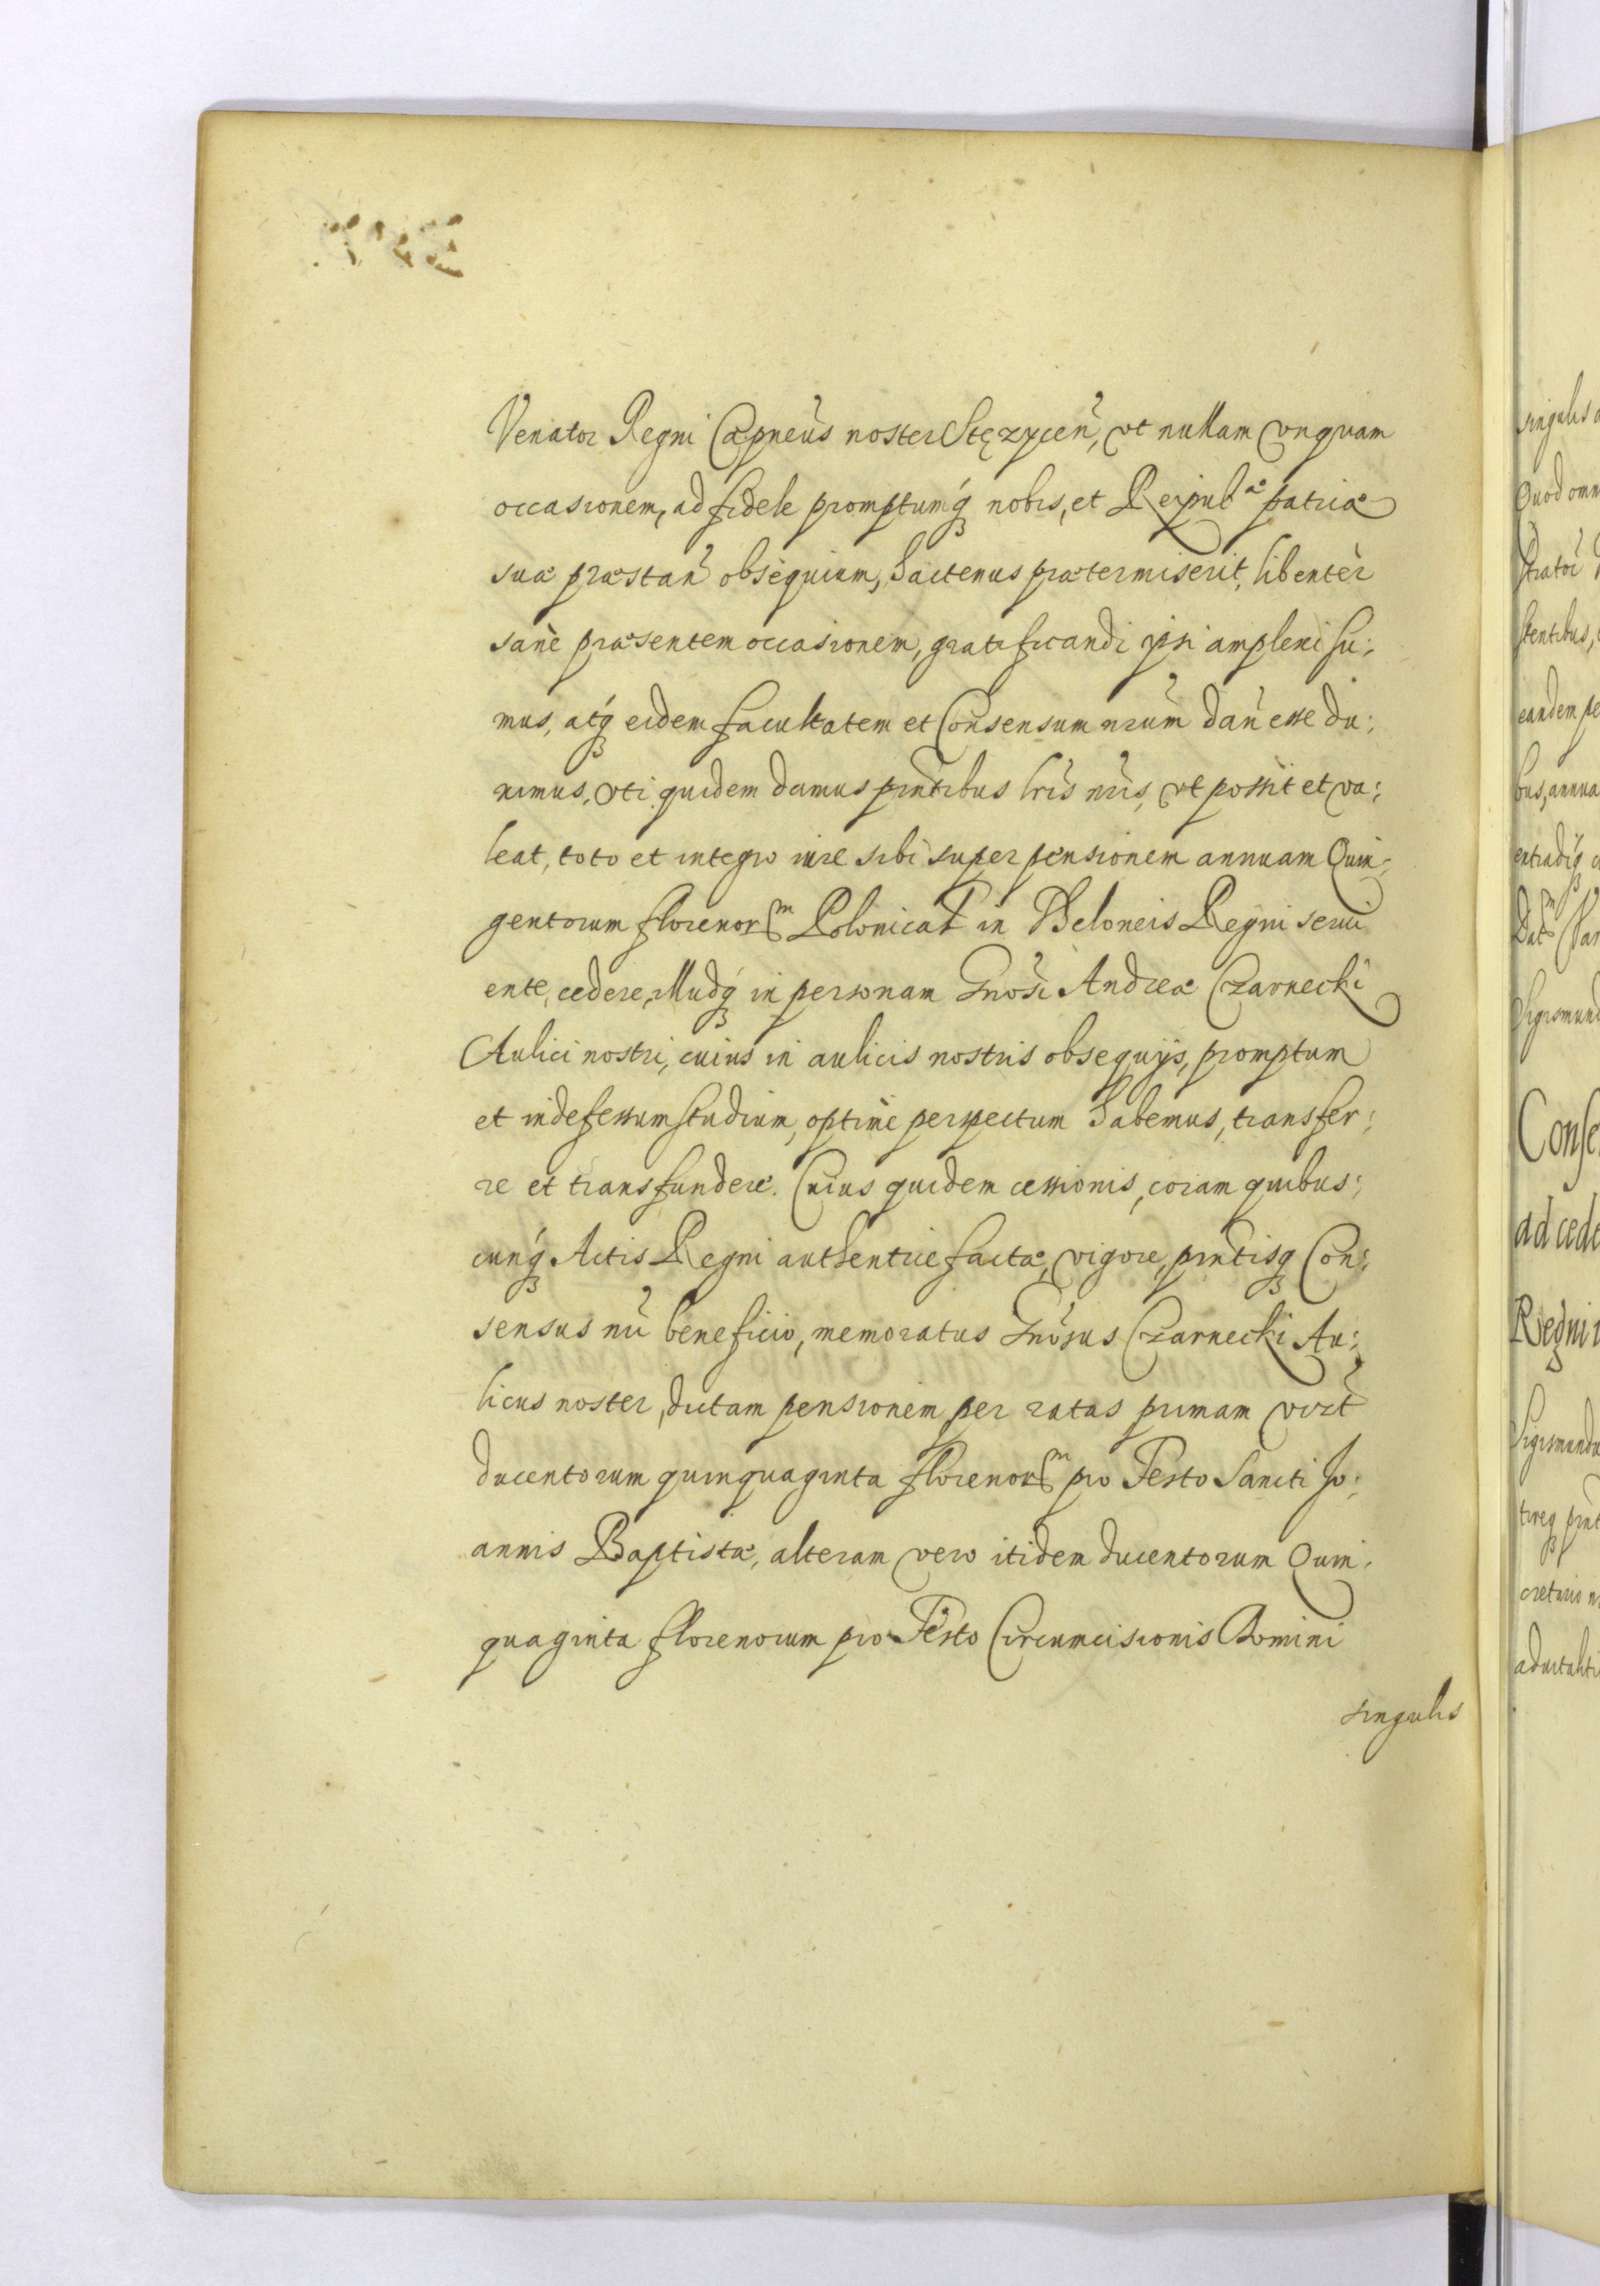 Venator Regni Capneus noster Stęzycen, vt nullam vnquam
occasionem, ad fidele promptumq nobis, et Reipubae patriæ
suæ præstan obsequium, hactenus prætermiserit, libentèr
sanè præsentem occasionem, gratificandi ipsi amplexi su:
mus, atq eidem facultatem et Consensum nrum dan esse du:
ximus, Vti quidem damus pntibus lris nris, vt possit et va:
leat, toto et integro iure sibi super pensionem annuam Quin:
gentorum florenorm Polonical in Theloneis Regni serui
ente, cedere, illudq in personam Gnosi Andreæ Czarnecki
Aulici nostri, cuius in aulicis nostris obsequijs, promptum
et indefessum studium, optimè perspectum habemus, transfer:
re et transfundere. Cuius quidem cessionis, coram quibus:
cunq Actis Regni authenticè factæ, vigore, pntisq Con:
sensus nri beneficio, memoratus Gnosus Czarnecki Au:
licus noster, dictam pensionem per ratas primam virt
ducentorum quinquaginta florenorm pro Festo Sancti Jo:
annis Baptistæ, alteram vero itidem ducentorum Quin:
quaginta florenorum pro Festo Circumcisionis Domini
singulis
singulis
Quod omn
stratoe
stentibus,
eandem pe
bus, annua
entiadiq
Sigismund
Conse
ad cede
Regni
Sigismundu
cretario n